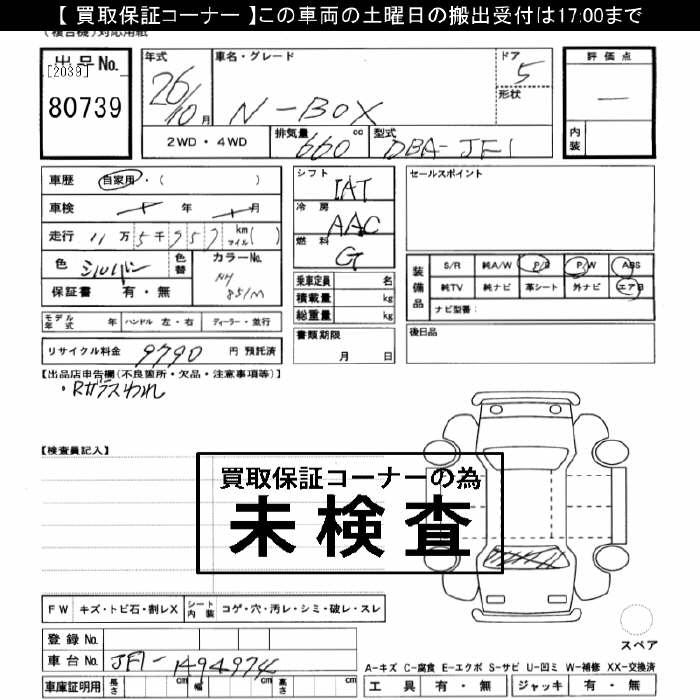 【 買取保証コーナー 】この車両の土曜日の搬出受付は17:00まで
出品No.
[2039]
80739
年式
26/10月
車名・グレード
N-BOX
ドア
5
形状
評価点
内装
2WD・4WD
排気量
660 cc
型式
DBA-JF1
車歴 自家用・( )
車検 年 月
走行 11万5千957 km マイル( )
色 シルバー
色替
カラーNo.
NH 851M
保証書 有・無
シフト
IAT
冷房
AAC
燃料
G
乗車定員 名
積載量 kg
総重量 kg
セールスポイント
装備品
S/R 純A/W P/S P/W ABS
純TV 純ナビ 革シート 外ナビ エアB
ナビ型番:
モデル年式 年 ハンドル 左・右 ディーラー・並行
リサイクル料金 9790 円 預託済
書類期限
月 日
後日品
【出品店申告欄(不良箇所・欠品・注意事項等)】
・Rガラスわれ
【検査員記入】
買取保証コーナーの為
未検査
FW キズ・トビ石・割レX シート内装 コゲ・穴・汚レ・シミ・破レ・スレ
登録No.
車台No. JF1-1494974
スペア
A-キズ C-腐食 E-エクボ S-サビ U-凹ミ W-補修 XX-交換済
車庫証明用 長さ cm 幅 cm 高さ cm
工具 有・無 ジャッキ 有・無